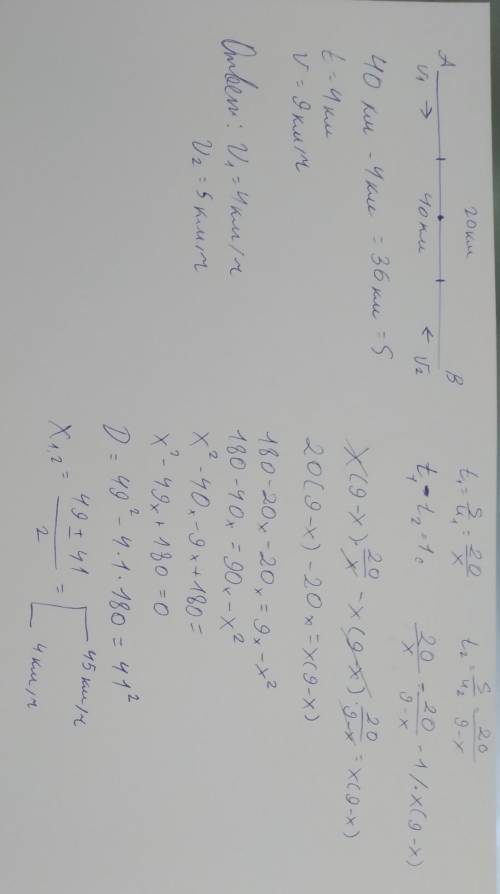 20км
A B
v₁ → 40км ← v₂
40 км - 4км = 36 км = S
t = 4 км
v = 9 км/ч
Ответ: v₁ = 4км/ч
v₂ = 5 км/ч
t₁ = S/u₁ = 20/x t₂ = S/u₂ 20/9-x
t₁ - t₂ = 1с 20/x = 20/9-x - 1 / · x(9-x)
x(9-x) · 20/x - x(9-x) · 20/9-x = x(9-x)
20(9-x) - 20x = x(9-x)
180 - 20x - 20x = 9x - x²
180 - 40x = 90x - x²
x² - 40x - 9x + 180 =
x² - 49x + 180 = 0
D = 49² - 4·1·180 = 41²
x₁,₂ = 49 ± 41 / 2 = [ 45 км/ч
4 км/ч